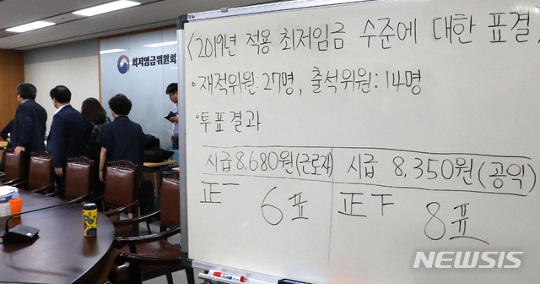 <2019년 적용 최저임금 수준에 대한 표결>
·재적위원:27명, 출석위원:14명
·투표결과
시급 8,680원(근로자) 시급 8,350원(공익)
正一 6표 正下 8표
최저임금위원회
NEWSIS